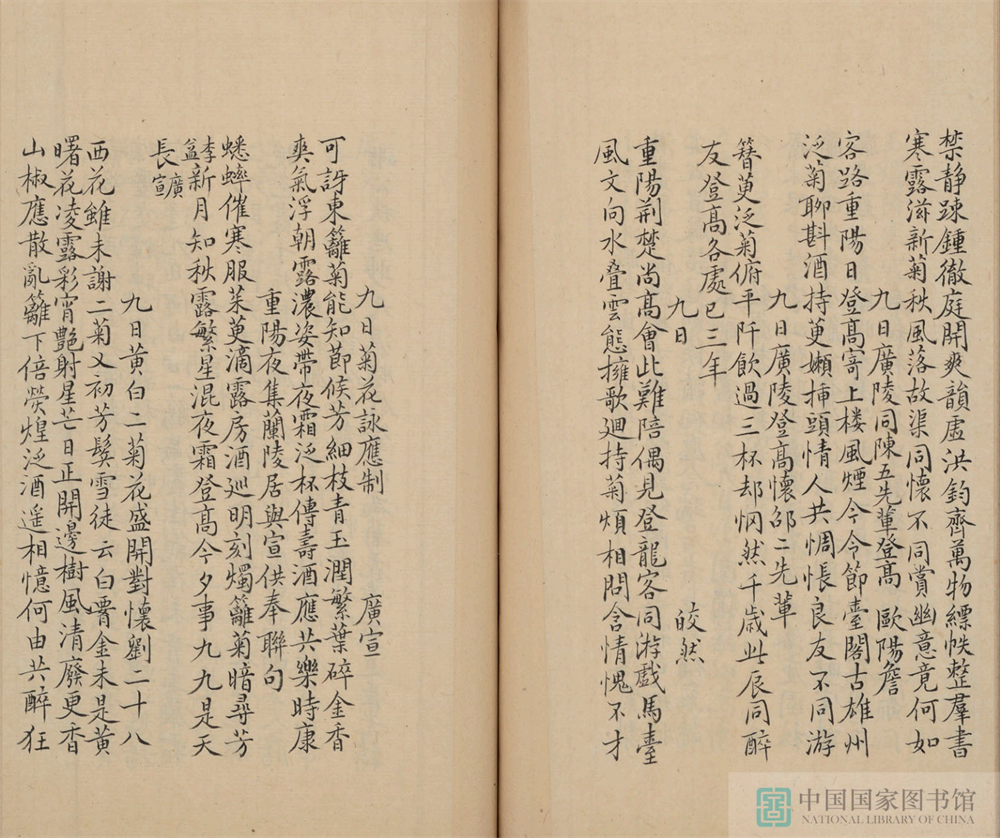 禁静踈鍾徹庭開爽韻虚洪鈞齊萬物縹帙整羣書
寒露滋新菊秋風落故渠同懷不同賞幽意竟何如
九日廣陵同陳五先輩登髙 歐陽詹
客路重陽日登髙寄上楼風煙今令節臺閣古雄州
泛菊聊斟酒持萸嬾揷頭情人共惆悵良友不同游
九日廣陵登髙懷邵二先輩
簪萸泛菊俯平阡飲過三杯却惘然千歳此辰同醉
友登髙各處已三年
九日 皎然
重陽荆楚尚髙會此難陪偶見登龍客同游戲馬臺
風文向水叠雲態擁歌廻持菊煩相問含情愧不才
九日菊花詠應制 廣宣
可訝東籬菊能知節候芳細枝青玉潤繁葉碎金香
爽氣浮朝露濃姿帶夜霜泛杯傳壽酒應共樂時康
重陽夜集蘭陵居與宣供奉聯句
蟋蟀催寒服茱萸滴露房酒廵明刻燭籬菊暗尋芳
李益新月知秋露繁星混夜霜登髙今夕事九九是天
長廣宣
九日黄白二菊花盛開對懷劉二十八
西花雖未謝二菊又初芳鬓雪徒云白腰金未是黄
曙花凌露彩宵艷射星芒日正開邊樹風清廢更香
山椒應散亂籬下倍熒煌泛酒遥相憶何由共醉狂
中国国家图书馆
NATIONAL LIBRARY OF CHINA